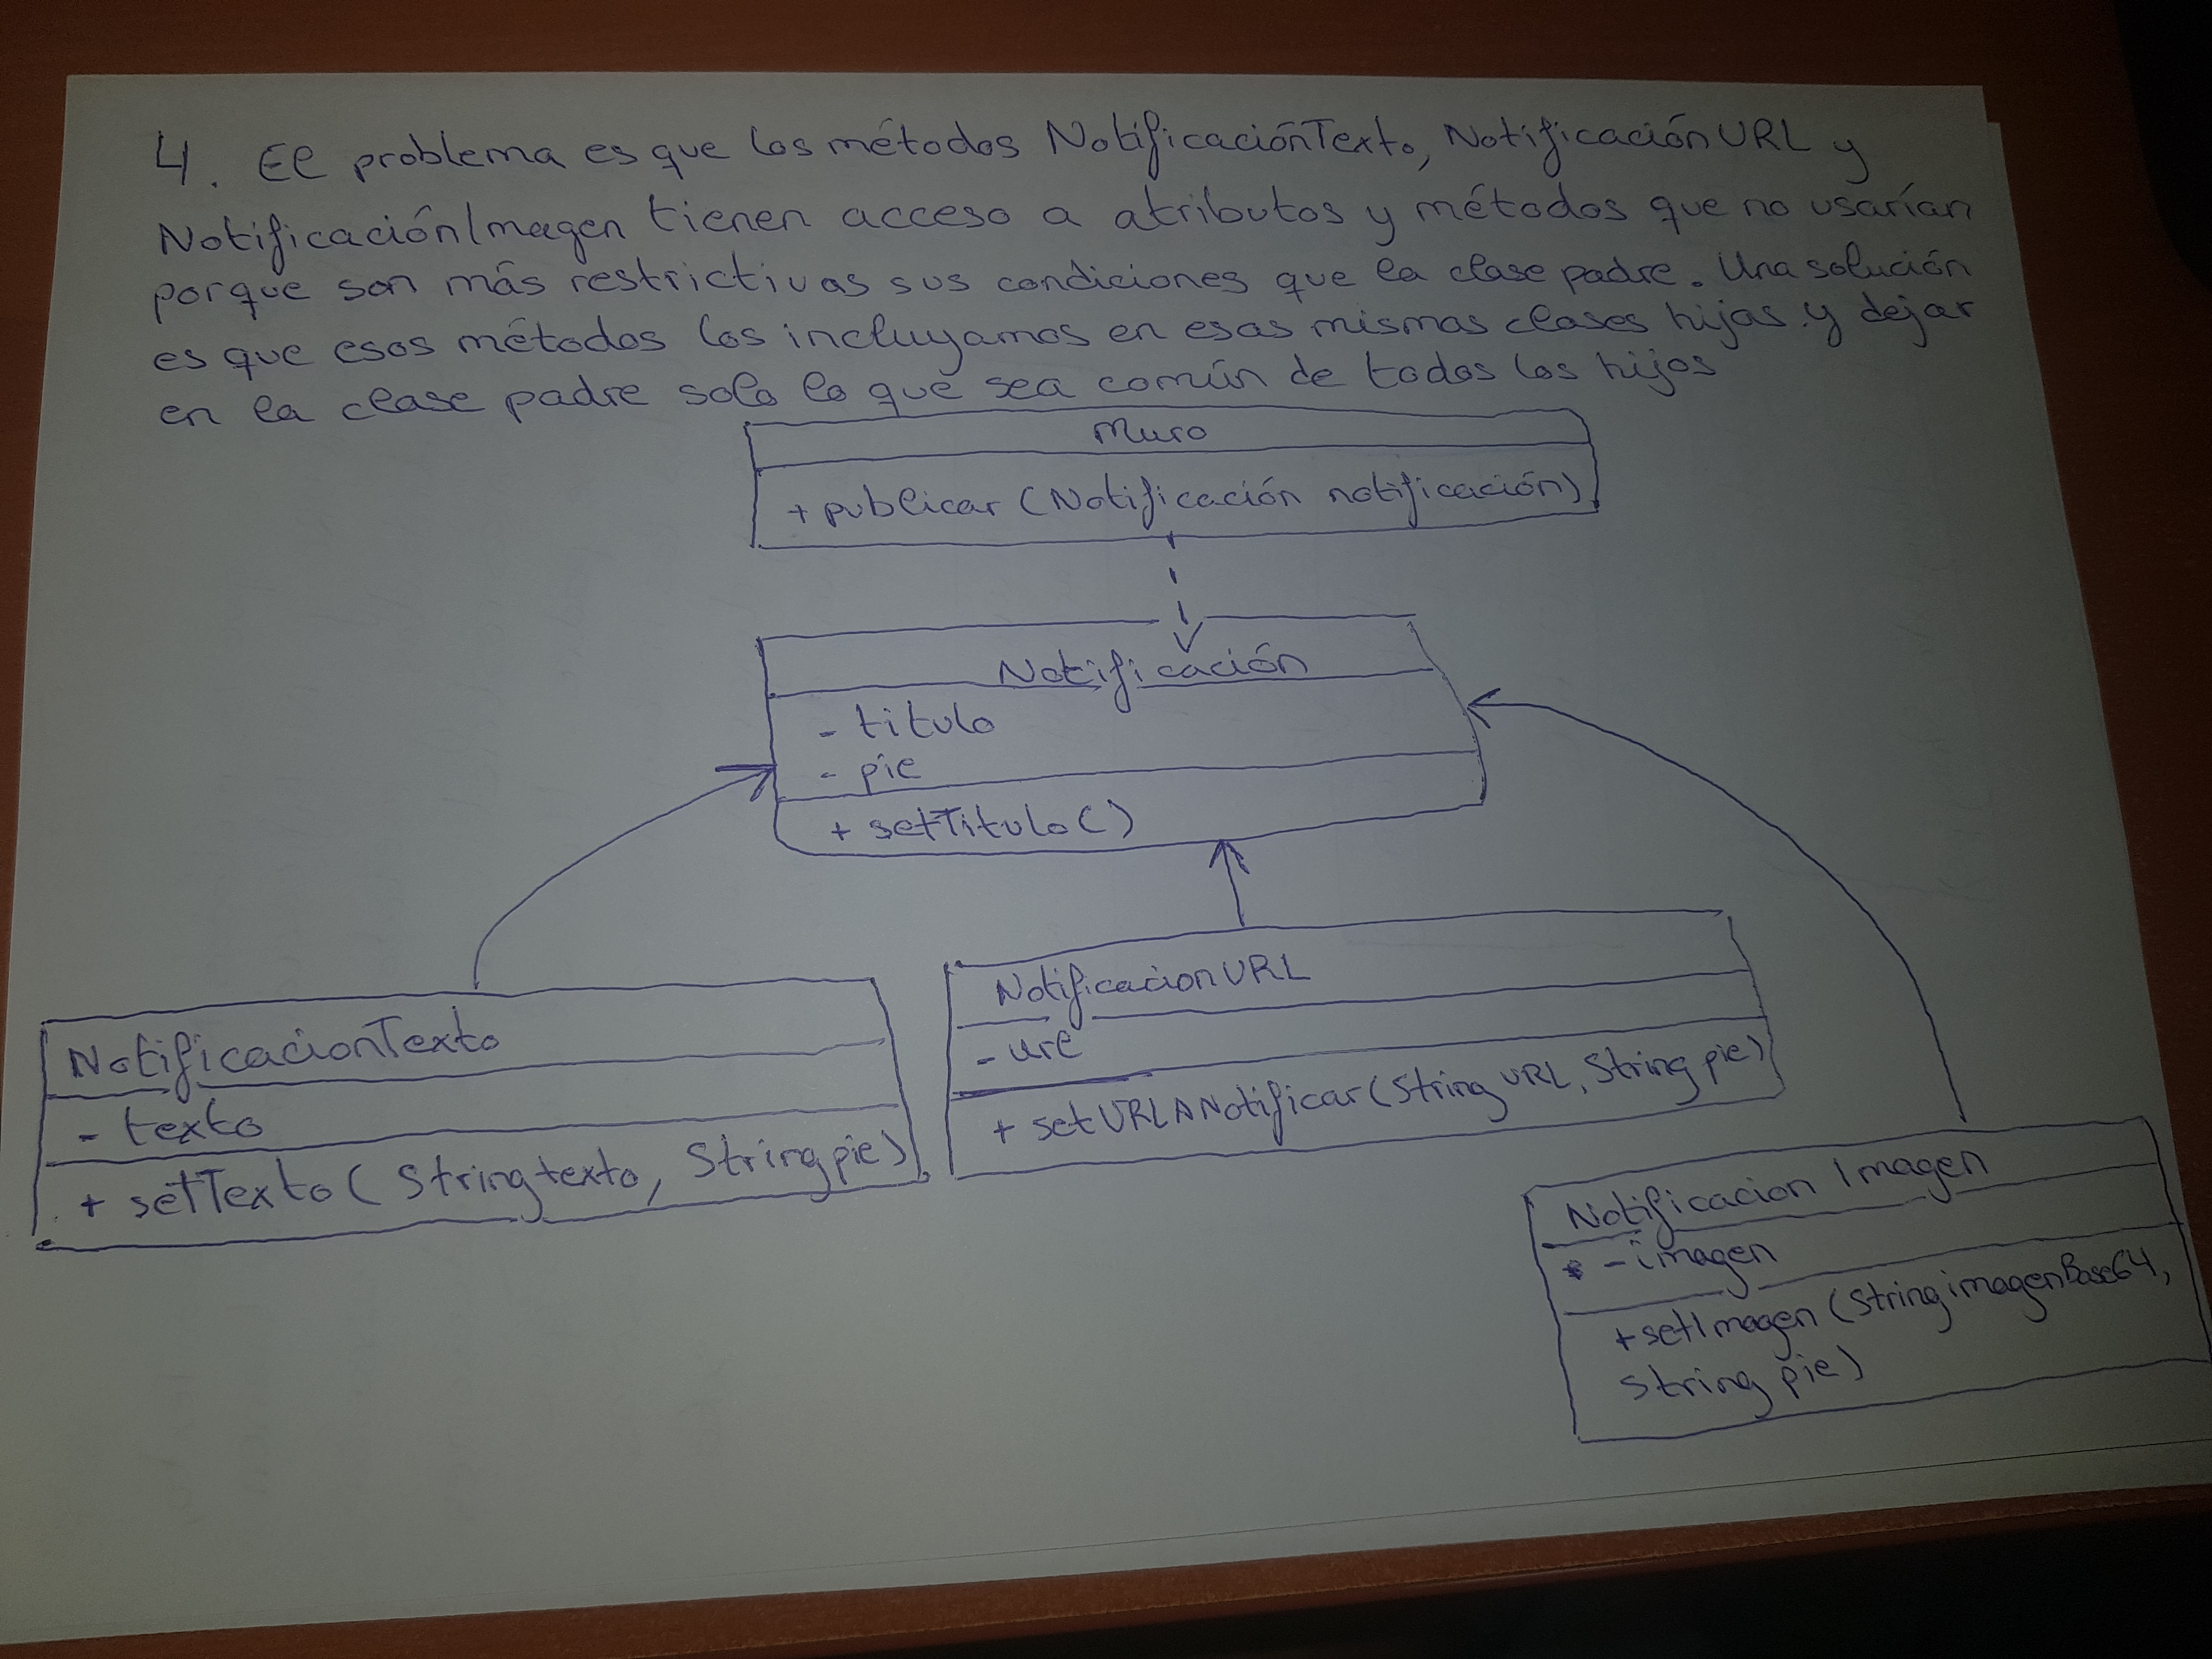 4. El problema es que los métodos NotificaciónTexto, NotificaciónURL y
NotificaciónImagen tienen acceso a atributos y métodos que no usarían
porque son más restrictivas sus condiciones que la clase padre. Una solución
es que esos métodos los incluyamos en esas mismas clases hijas y dejar
en la clase padre solo lo que sea común de todos los hijos
Muro
+ publicar (Notificación notificación)
Notificación
- titulo
- pie
+ setTitulo()
NotificacionTexto
- texto
+ setTexto (String texto, String pie)
NotificacionURL
- url
+ setURLANotificar (String URL, String pie)
Notificacion Imagen
- imagen
+ setImagen (String imagenBase64,
String pie)